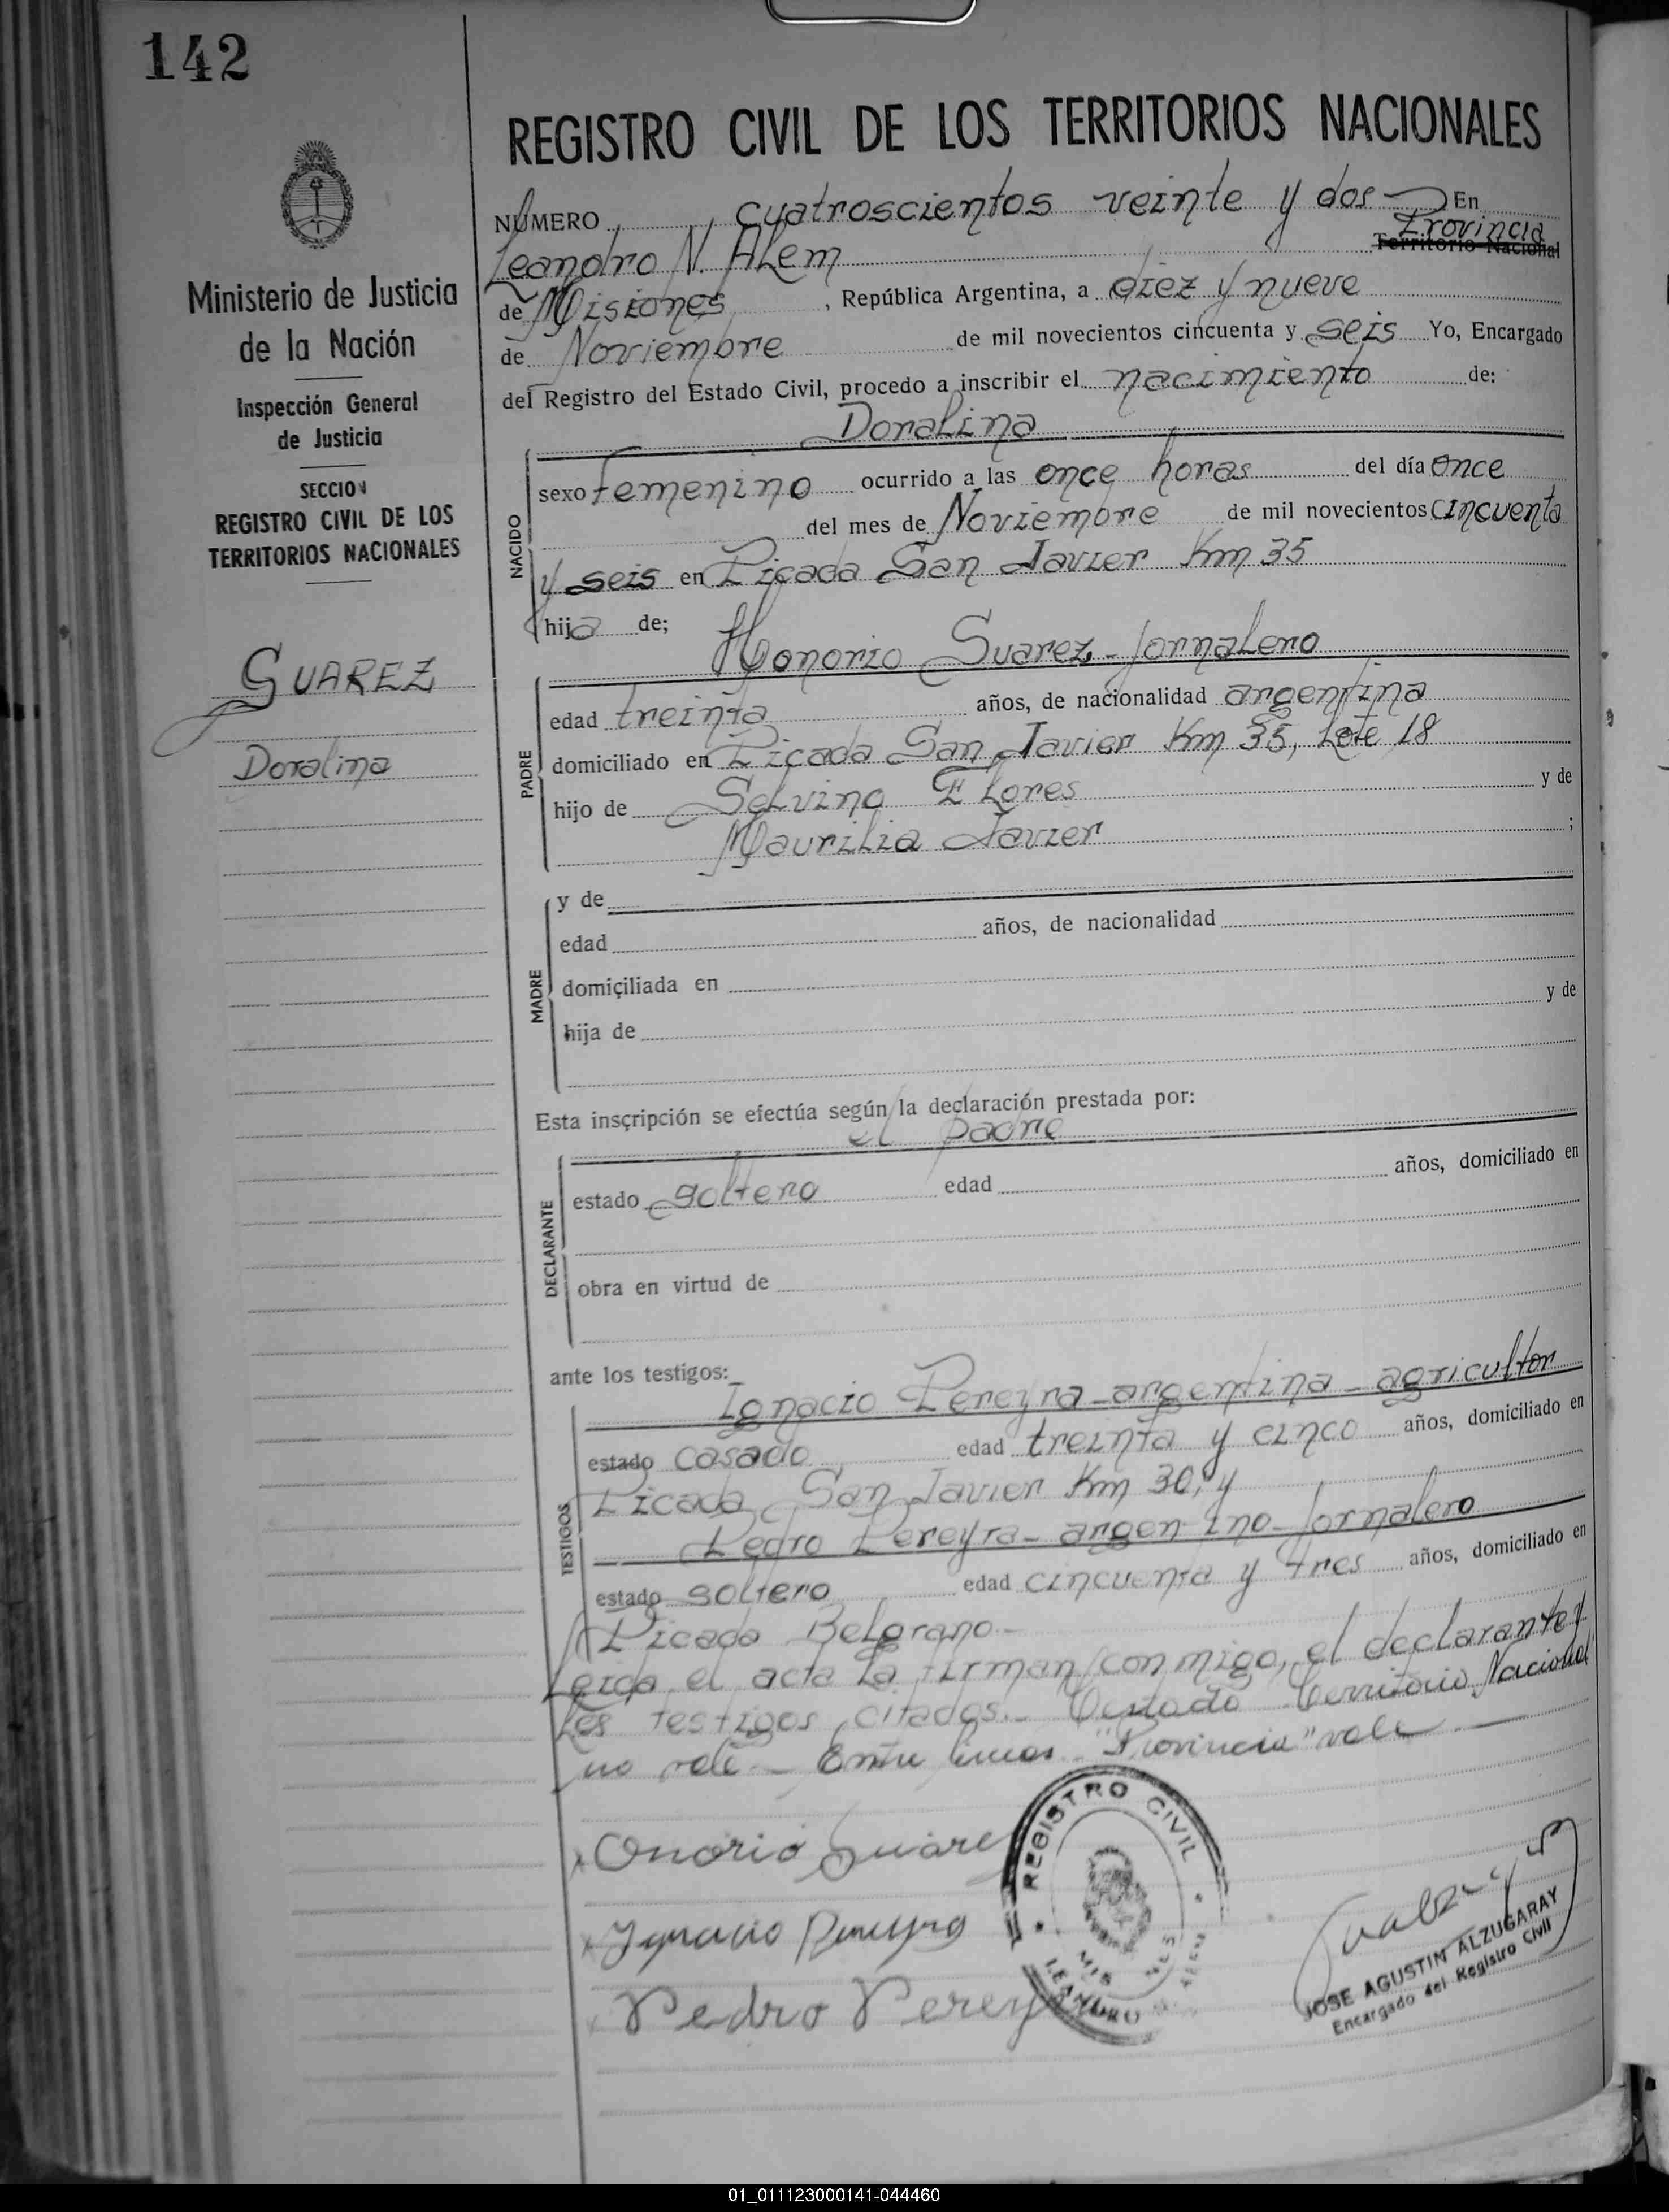 142
REGISTRO CIVIL DE LOS TERRITORIOS NACIONALES
NUMERO cuatroscientos veinte y dos En
Provincia
Leandro N. Alem Territorio Nacional
de Misiones, República Argentina, a diez y nueve
de Noviembre de mil novecientos cincuenta y seis Yo, Encargado
del Registro del Estado Civil, procedo a inscribir el nacimiento de:
Doralina
Ministerio de Justicia
de la Nación
Inspección General
de Justicia
SECCION
REGISTRO CIVIL DE LOS
TERRITORIOS NACIONALES
SUAREZ
Doralina
NACIDO
sexo femenino ocurrido a las once horas del día once
del mes de Noviembre de mil novecientos cincuenta
y seis en Picada San Javier Km 35
hija de;
Honorio Suarez - Jornalero
PADRE
edad treinta años, de nacionalidad argentina
domiciliado en Picada San Javier Km 35, Lote 18
hijo de Selvino Flores y de
Maurilia Javier ;
MADRE
y de
edad años, de nacionalidad
domiciliada en
hija de y de
Esta inscripción se efectúa según la declaración prestada por:
el padre
DECLARANTE
estado soltero edad años, domiciliado en
obra en virtud de
ante los testigos:
TESTIGOS
Ignacio Pereyra - argentina - agricultor
estado casado edad treinta y cinco años, domiciliado en
Picada San Javier Km 30, y
Pedro Pereyra - argentino - Jornalero
estado soltero edad cincuenta y tres años, domiciliado en
Picada Belgrano.-
Leida el acta la firman conmigo, el declarante y
los testigos citados.- Testado Territorio Nacional
no vale - Entre lineas "Provincia" vale
Onorio Suarez
Ignacio Pereyra
Pedro Perey
REGISTRO CIVIL
LEANDRO
JOSE AGUSTIM ALZUGARAY
Encargado del Registro Civil
01_011123000141-044460